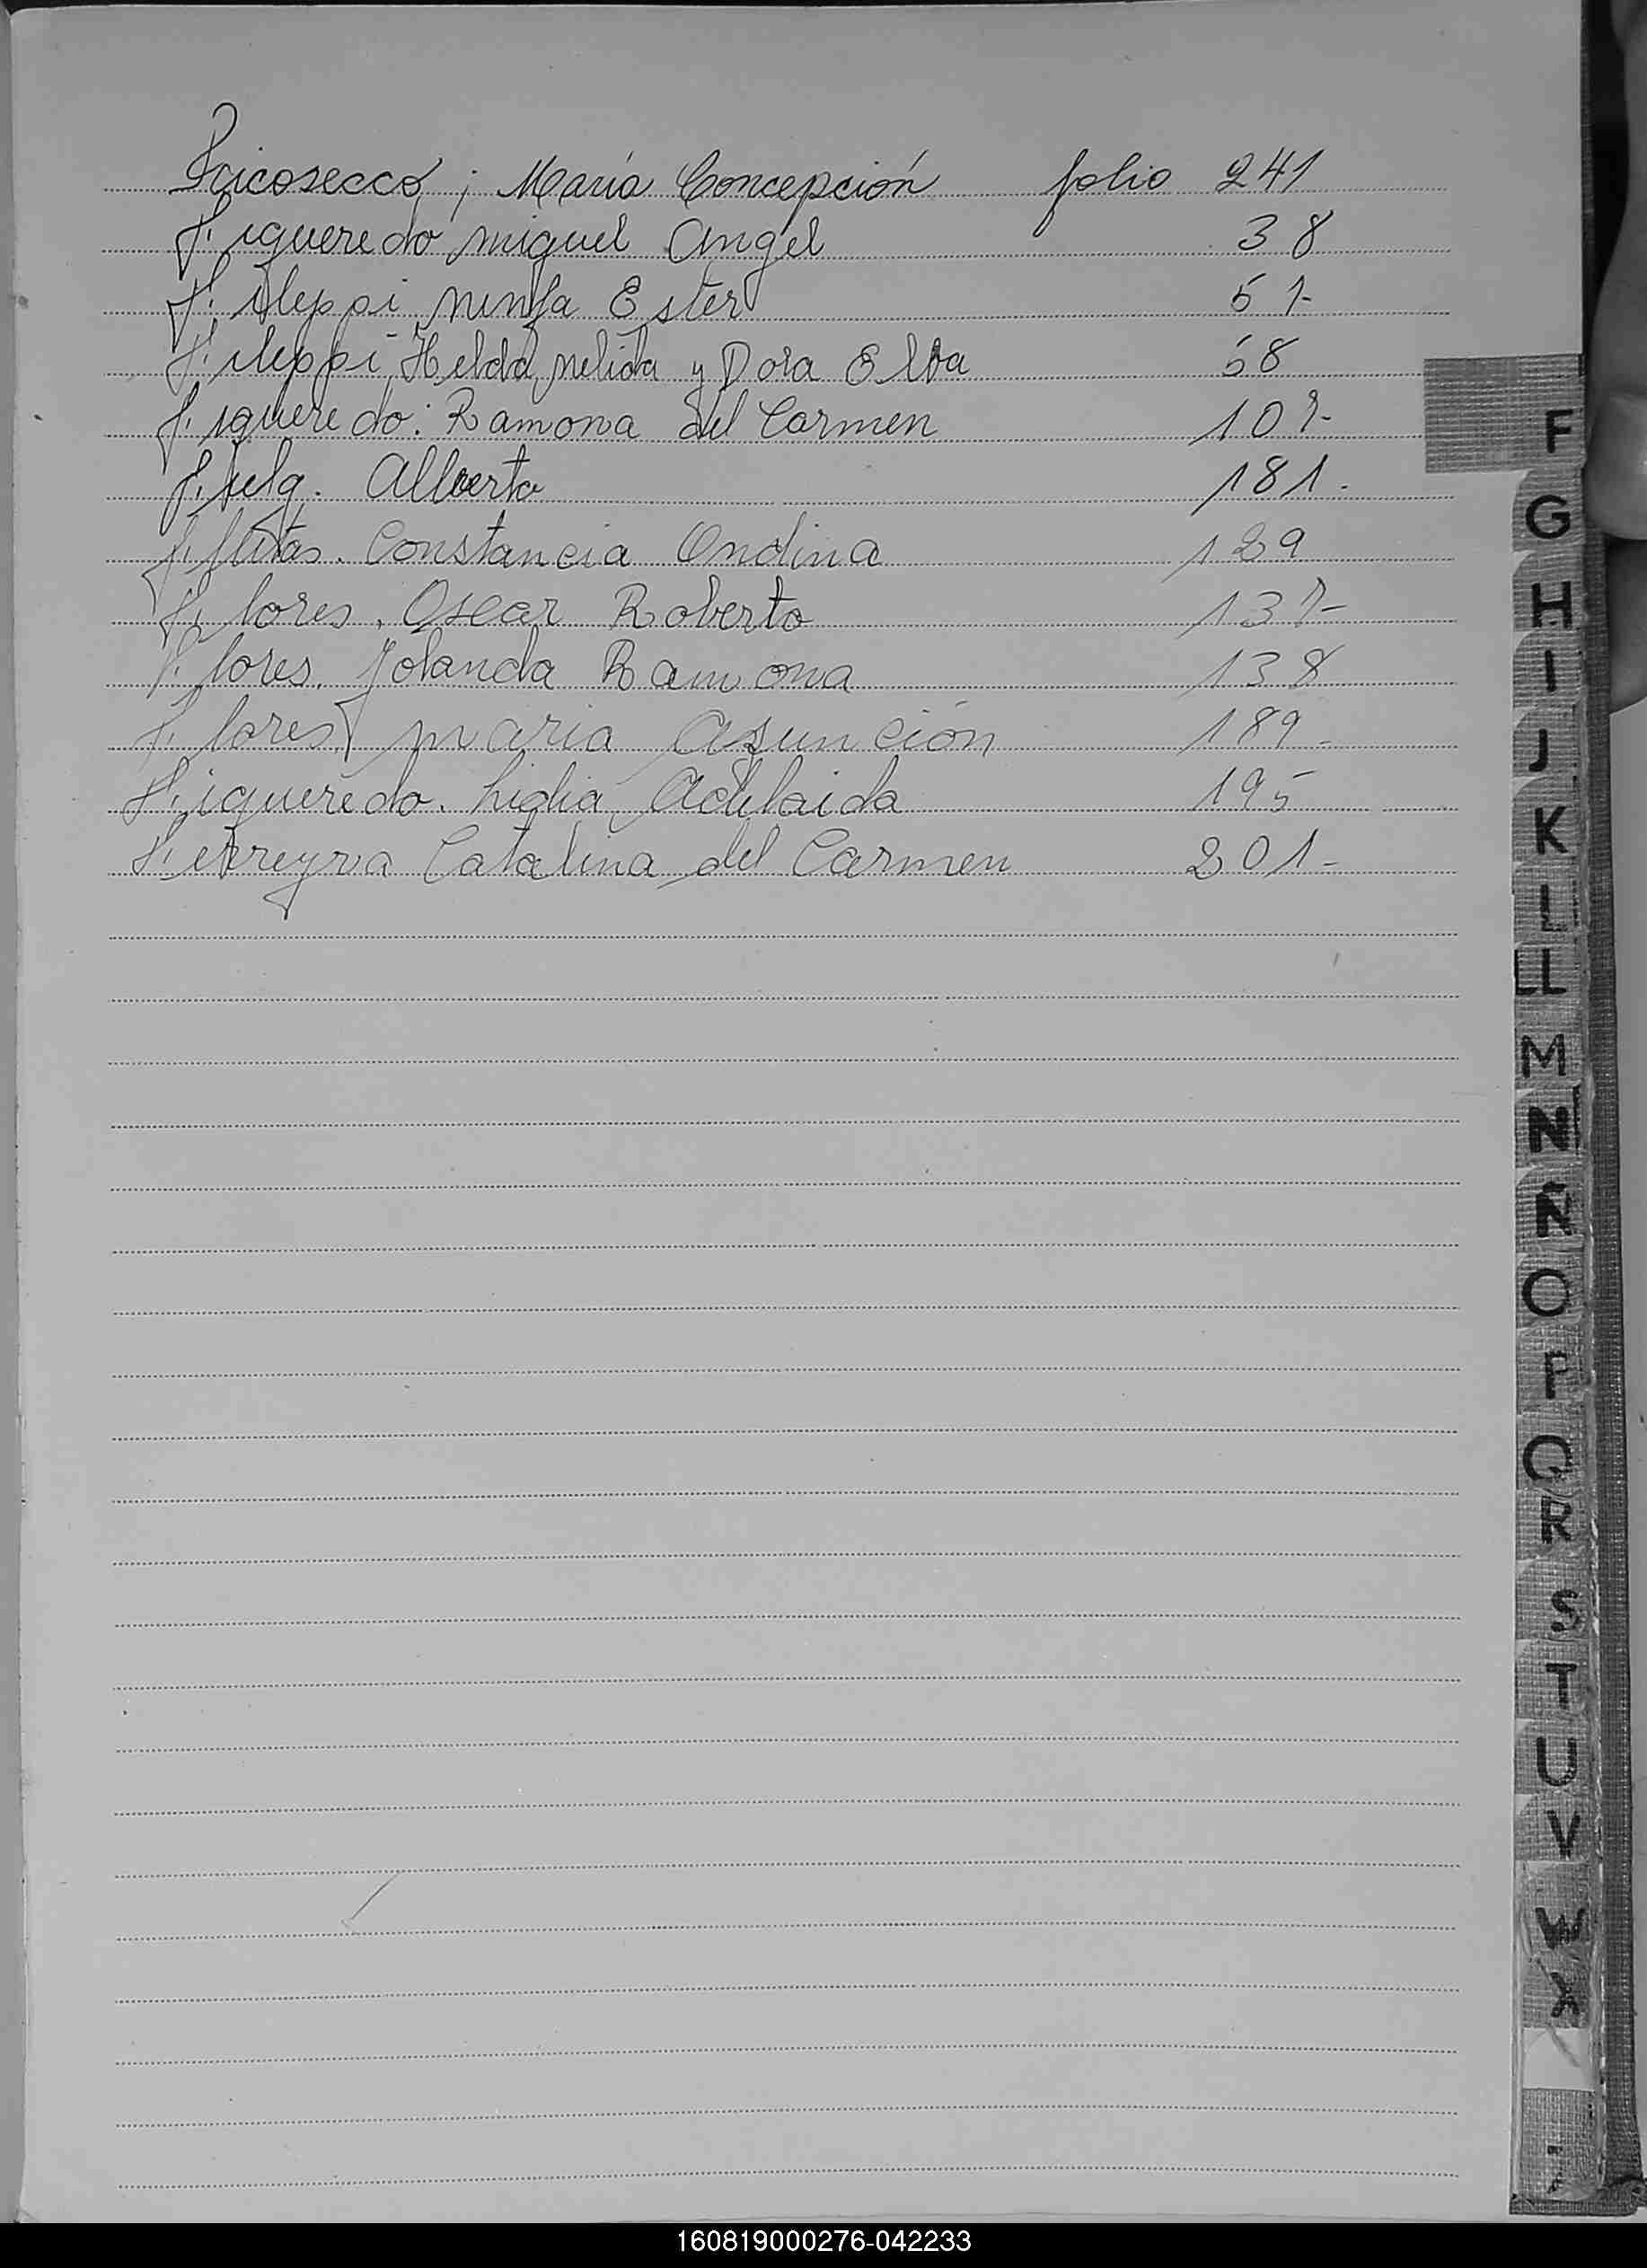 Fricosecco; María Concepción folio 241
Figueredo miguel Angel 38
Fileppi ninfa Ester 51-
Fileppi, Helda, nelida y Dora Elva 58
Figueredo: Ramona del Carmen 107-
Alberto 181.
Constancia Ondina 129
Flores, Oscar Roberto 137-
Flores. Yolanda Ramona 138
Flores, maria Asunción 189-
Figueredo. Lidia Adelaida 195
Ferreyra Catalina del Carmen 201-
F
G
H
I
J
K
L
LL
M
N
Ñ
O
P
Q
R
S
T
U
V
W
160819000276-042233